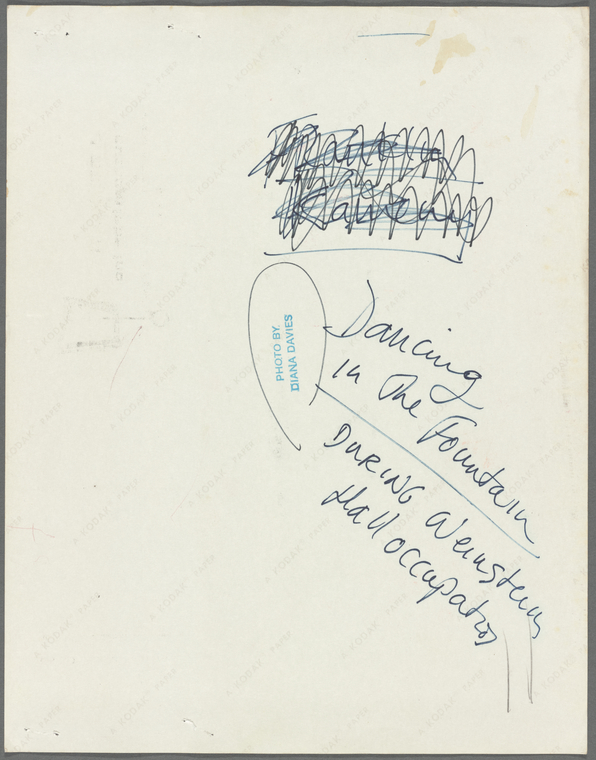 PHOTO BY
DIANA DAVIES
Dancing
in The Fountain
DURING Weinstein
Hall occupation